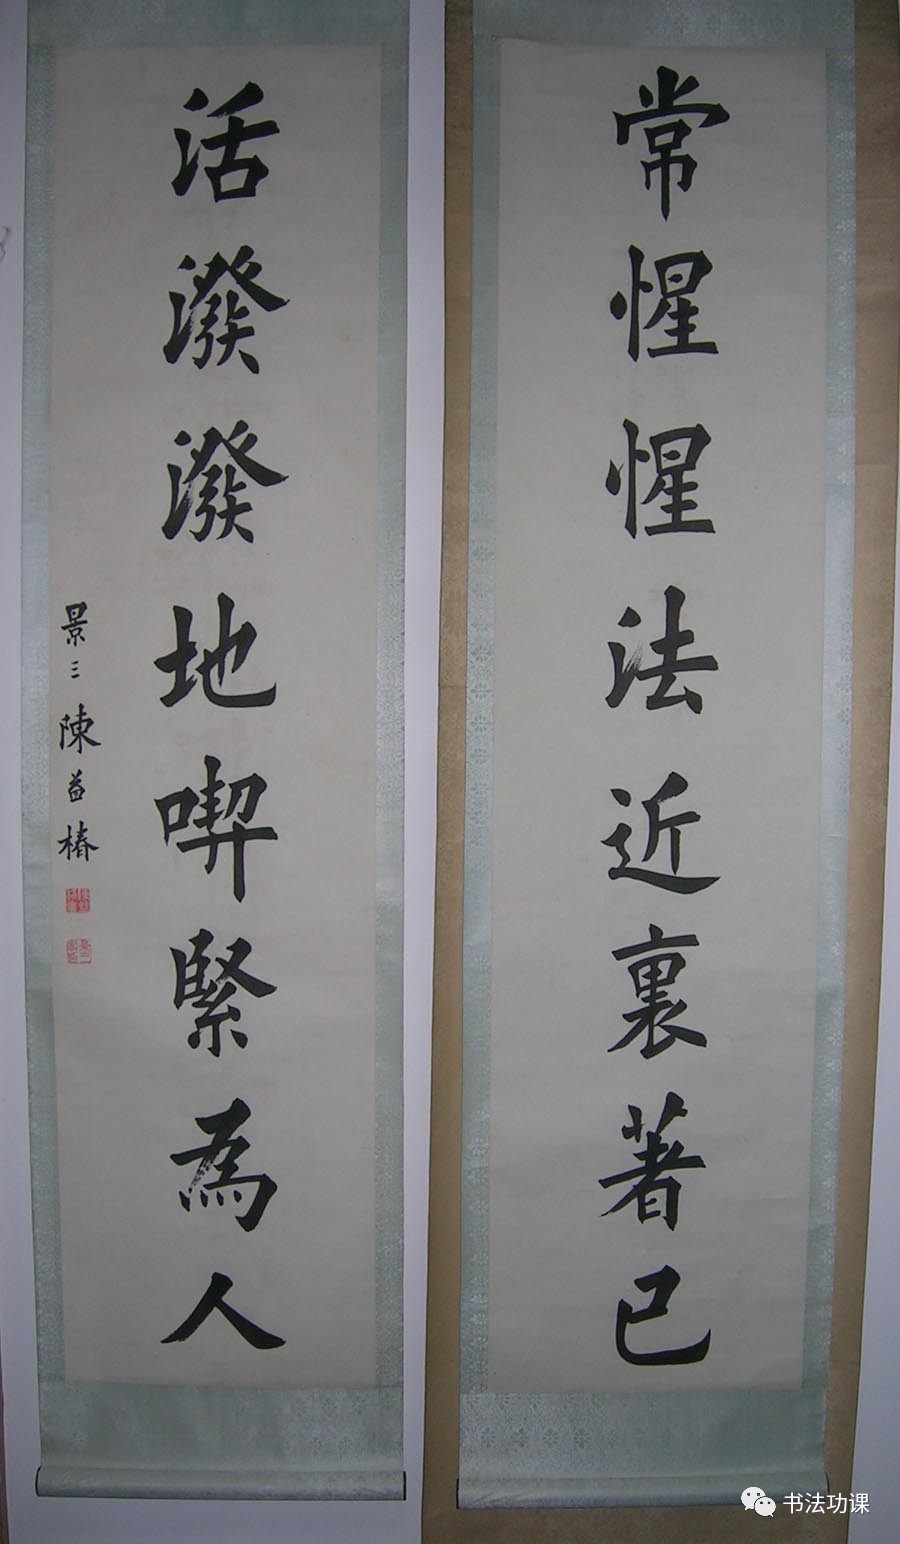 常惺惺法近裏著己
活潑潑地喫緊為人
景三陳益椿
书法功课